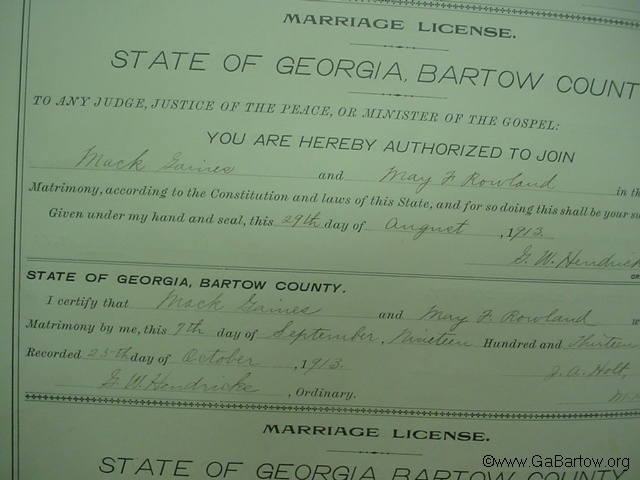 MARRIAGE LICENSE.
STATE OF GEORGIA, BARTOW COUNT
TO ANY JUDGE, JUSTICE OF THE PEACE, OR MINISTER OF THE GOSPEL:
YOU ARE HEREBY AUTHORIZED TO JOIN
Mack Gaines and May F Rowland in th
Matrimony, according to the Constitution and laws of this State, and for so doing this shall be your su
Given under my hand and seal, this 29th day of August, 1913.
G. W. Hendrick
STATE OF GEORGIA, BARTOW COUNTY.
I certify that Mack Gaines and May F. Rowland w
Matrimony by me, this 7th day of September, Nineteen Hundred and Thirteen
Recorded 25th day of October, 1913. J. A. Holt,
G. W. Hendricks, Ordinary.
MARRIAGE LICENSE.
STATE OF GEORGIA BARTOW COUNTY
©www.GaBartow.org